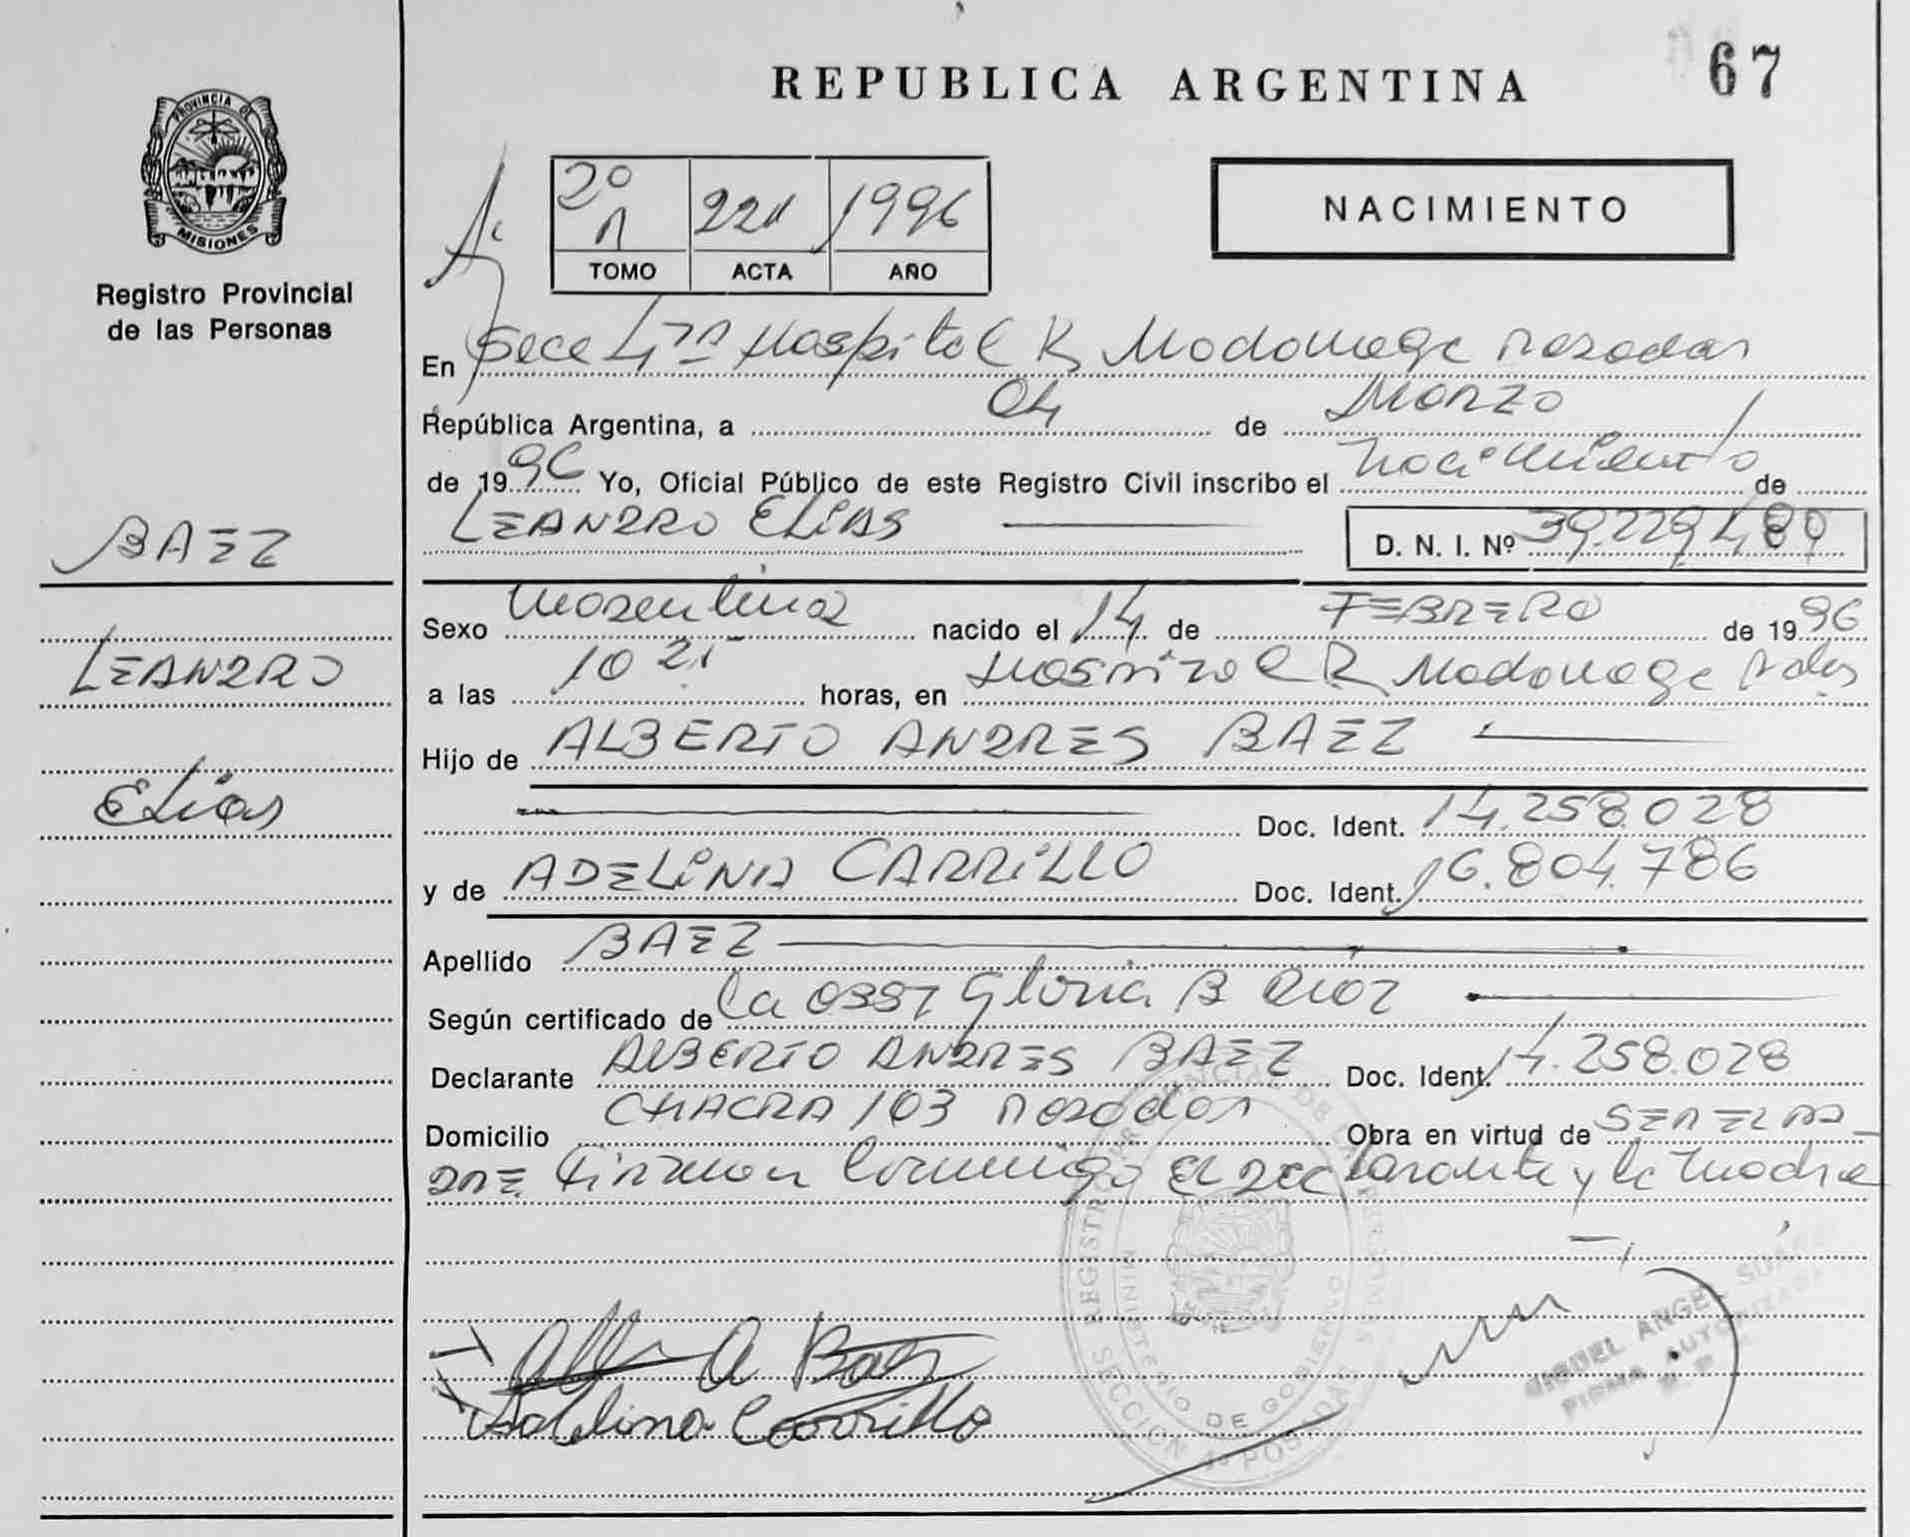 REPUBLICA ARGENTINA
67
PROVINCIA DE
MISIONES
Registro Provincial
de las Personas
2º 1 221 1996
TOMO ACTA AÑO
NACIMIENTO
En Secc 4ta Hospital R Madariaga Posadas
República Argentina, a 04 de Marzo
de 1996 Yo, Oficial Público de este Registro Civil inscribo el Nacimiento de
LEANDRO ELIAS
D. N. I. Nº 39.229.489
BAEZ
LEANDRO
Elias
Sexo Masculino nacido el 14 de FEBRERO de 1996
a las 10 25 horas, en Hospital R Madariaga Pdas
Hijo de ALBERTO ANDRES BAEZ
Doc. Ident. 14.258.028
y de ADELINA CARRILLO Doc. Ident. 16.804.786
Apellido BAEZ
Según certificado de La Gloria B
Declarante ALBERTO ANDRES BAEZ Doc. Ident. 14.258.028
Domicilio CHACRA 103 Posadas Obra en virtud de SER EL PA-
DRE Firman conmigo El Declarante y la Madre
Adelina Carrillo
REGISTRO PROVINCIAL DE LAS PERSONAS
MINISTERIO DE GOBIERNO
SECCION 4ª POSADAS
MIGUEL ANGEL
FIRMA AUTORIZADA